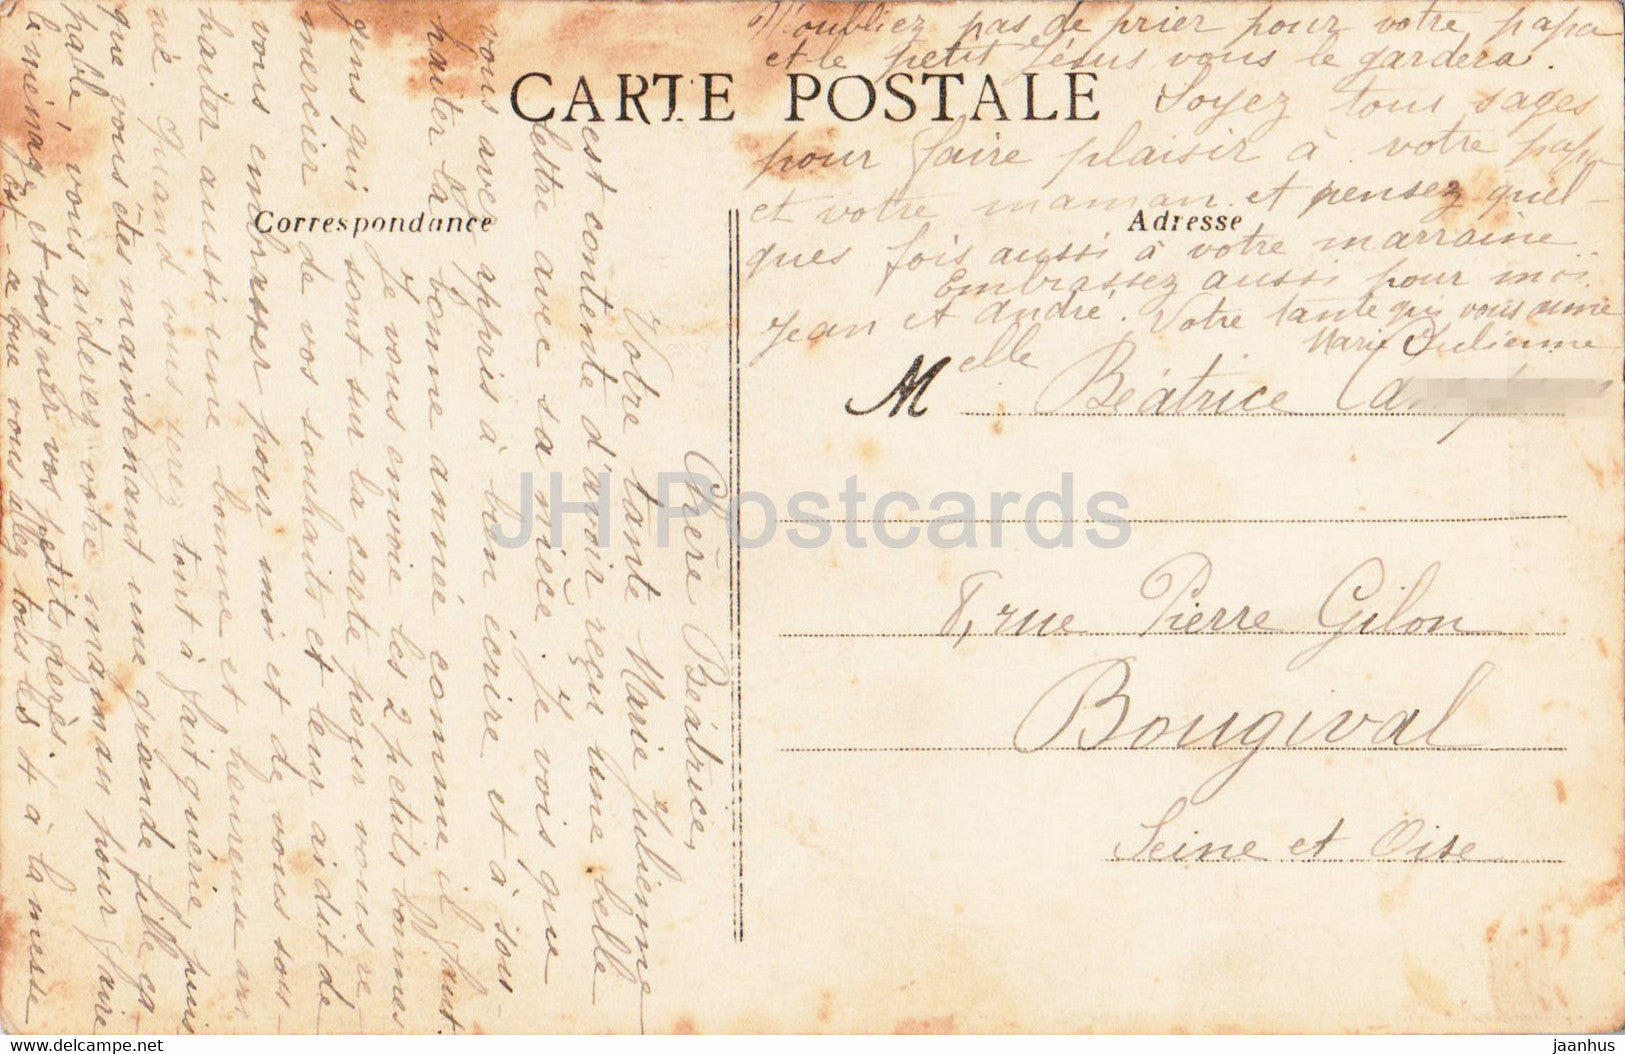 CARTE POSTALE
Correspondance
Adresse
Chère Béatrice,
Votre tante Marie Julienne
est contente d'avoir reçu une belle
lettre avec sa nièce. Je vois que
vous avez appris à bien écrire et à sou-
haiter la bonne année comme il faut.
Je vous envoie les 2 petits bonnes
gens qui sont sur la carte pour vous re
mercier de vos souhaits et leur ai dit de
vous embrasser pour moi et de vous sou-
haiter aussi une bonne et heureuse an
née. Quand vous serez tout à fait guérie puis
que vous êtes maintenant une grande fille ca
pable, vous aiderez votre maman pour faire
le ménage et soigner vos petits frères.
Est-ce que vous allez tous les 4 à la messe
N'oubliez pas de prier pour votre papa
et le petit Jésus vous le gardera.
Soyez tous sages
pour faire plaisir à votre papa
et votre maman et pensez quel-
ques fois aussi à votre marraine
Embrassez aussi pour moi
Jean et André. Votre tante qui vous aime
Marie Julienne
Melle Béatrice
8, rue Pierre Gilon
Bougival
Seine et Oise
JH Postcards
es.delcampe.net
jaanhus